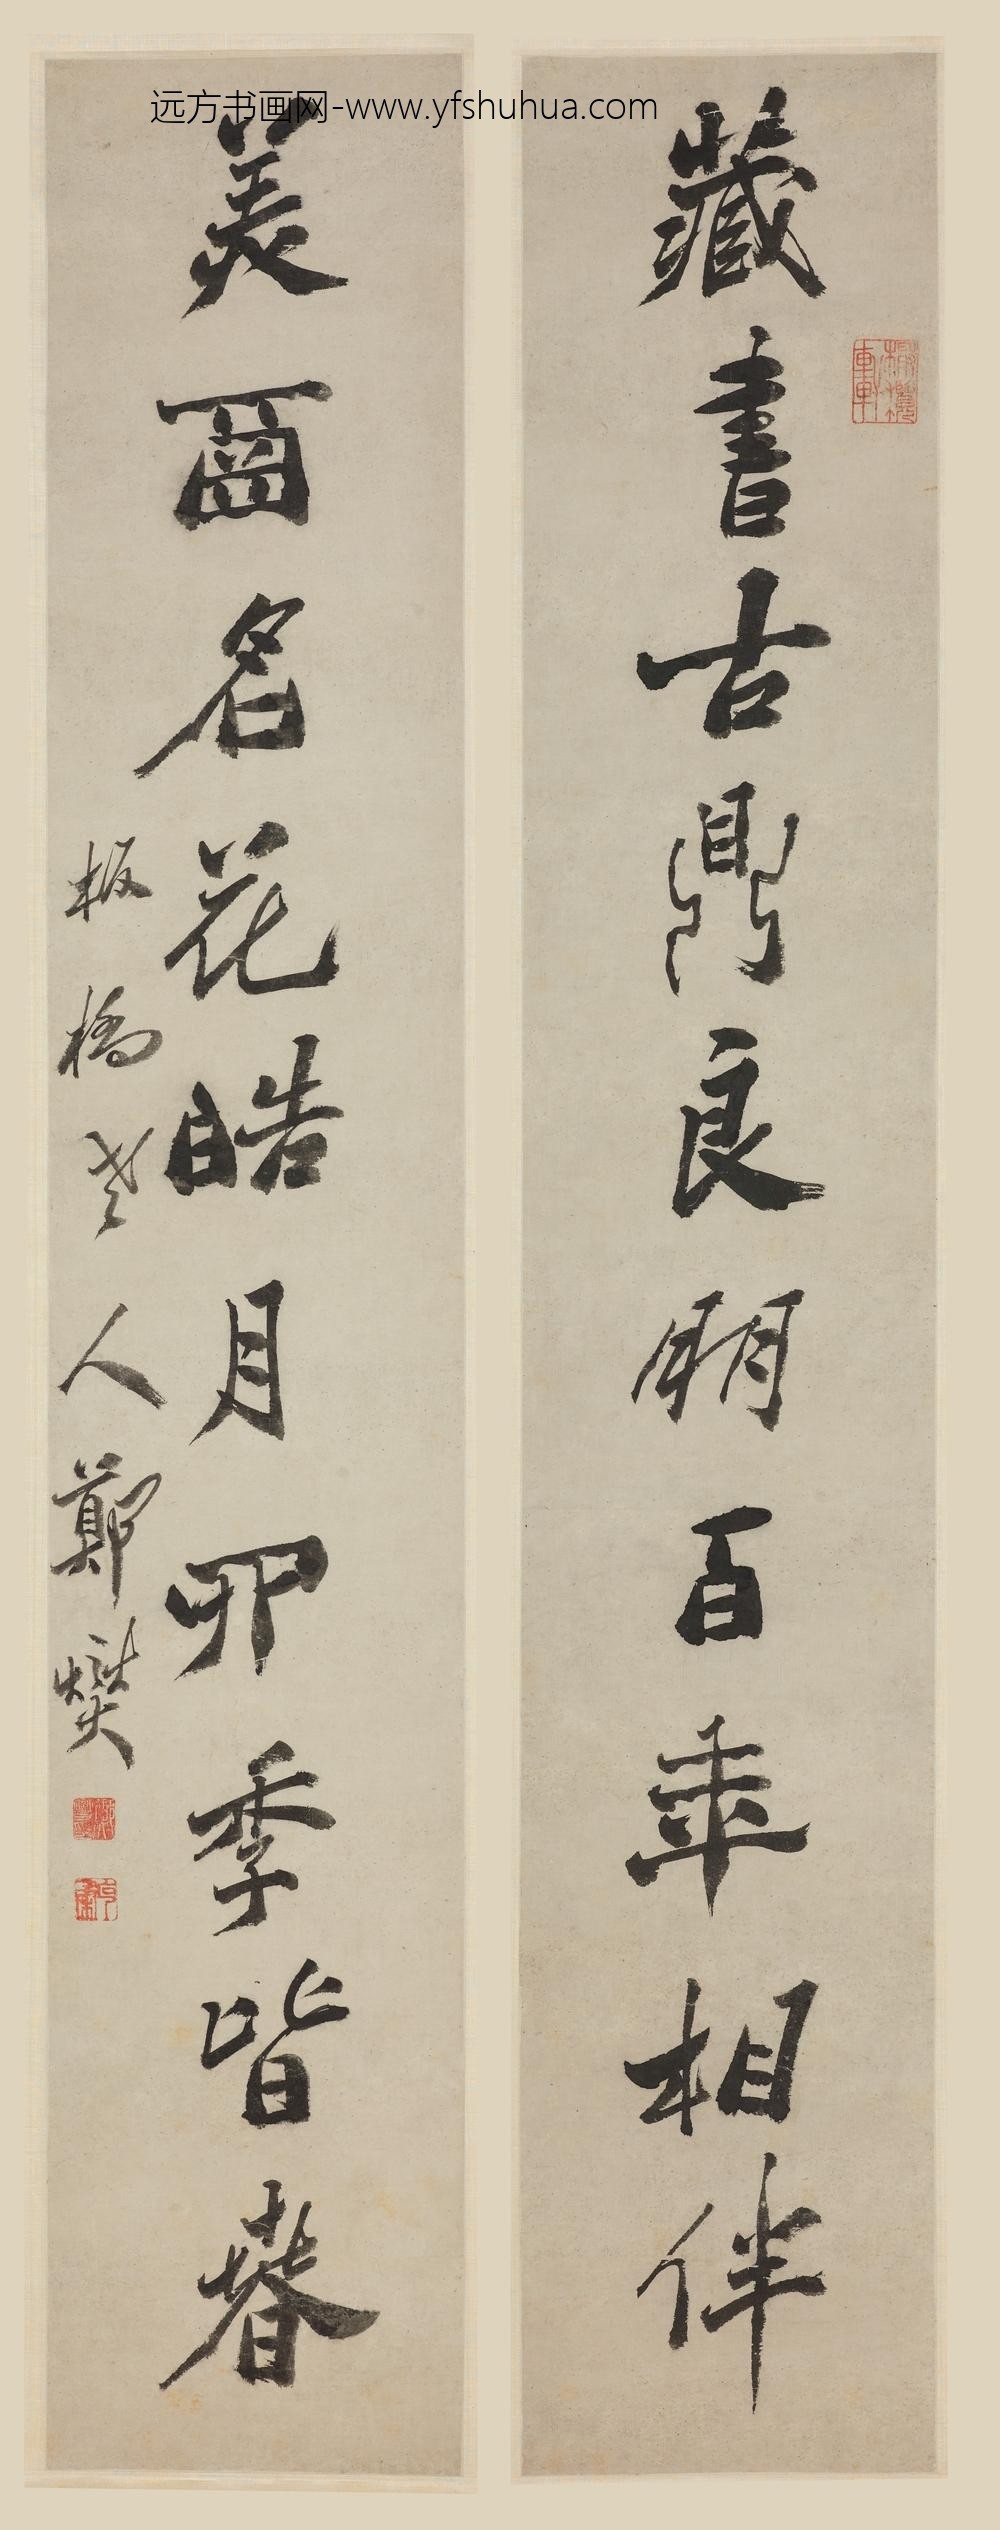 远方书画网-www.yfshuhua.com
藏書古鼎良朋百年相伴
美酉名花皓月四季皆春
板橋老人鄭燮